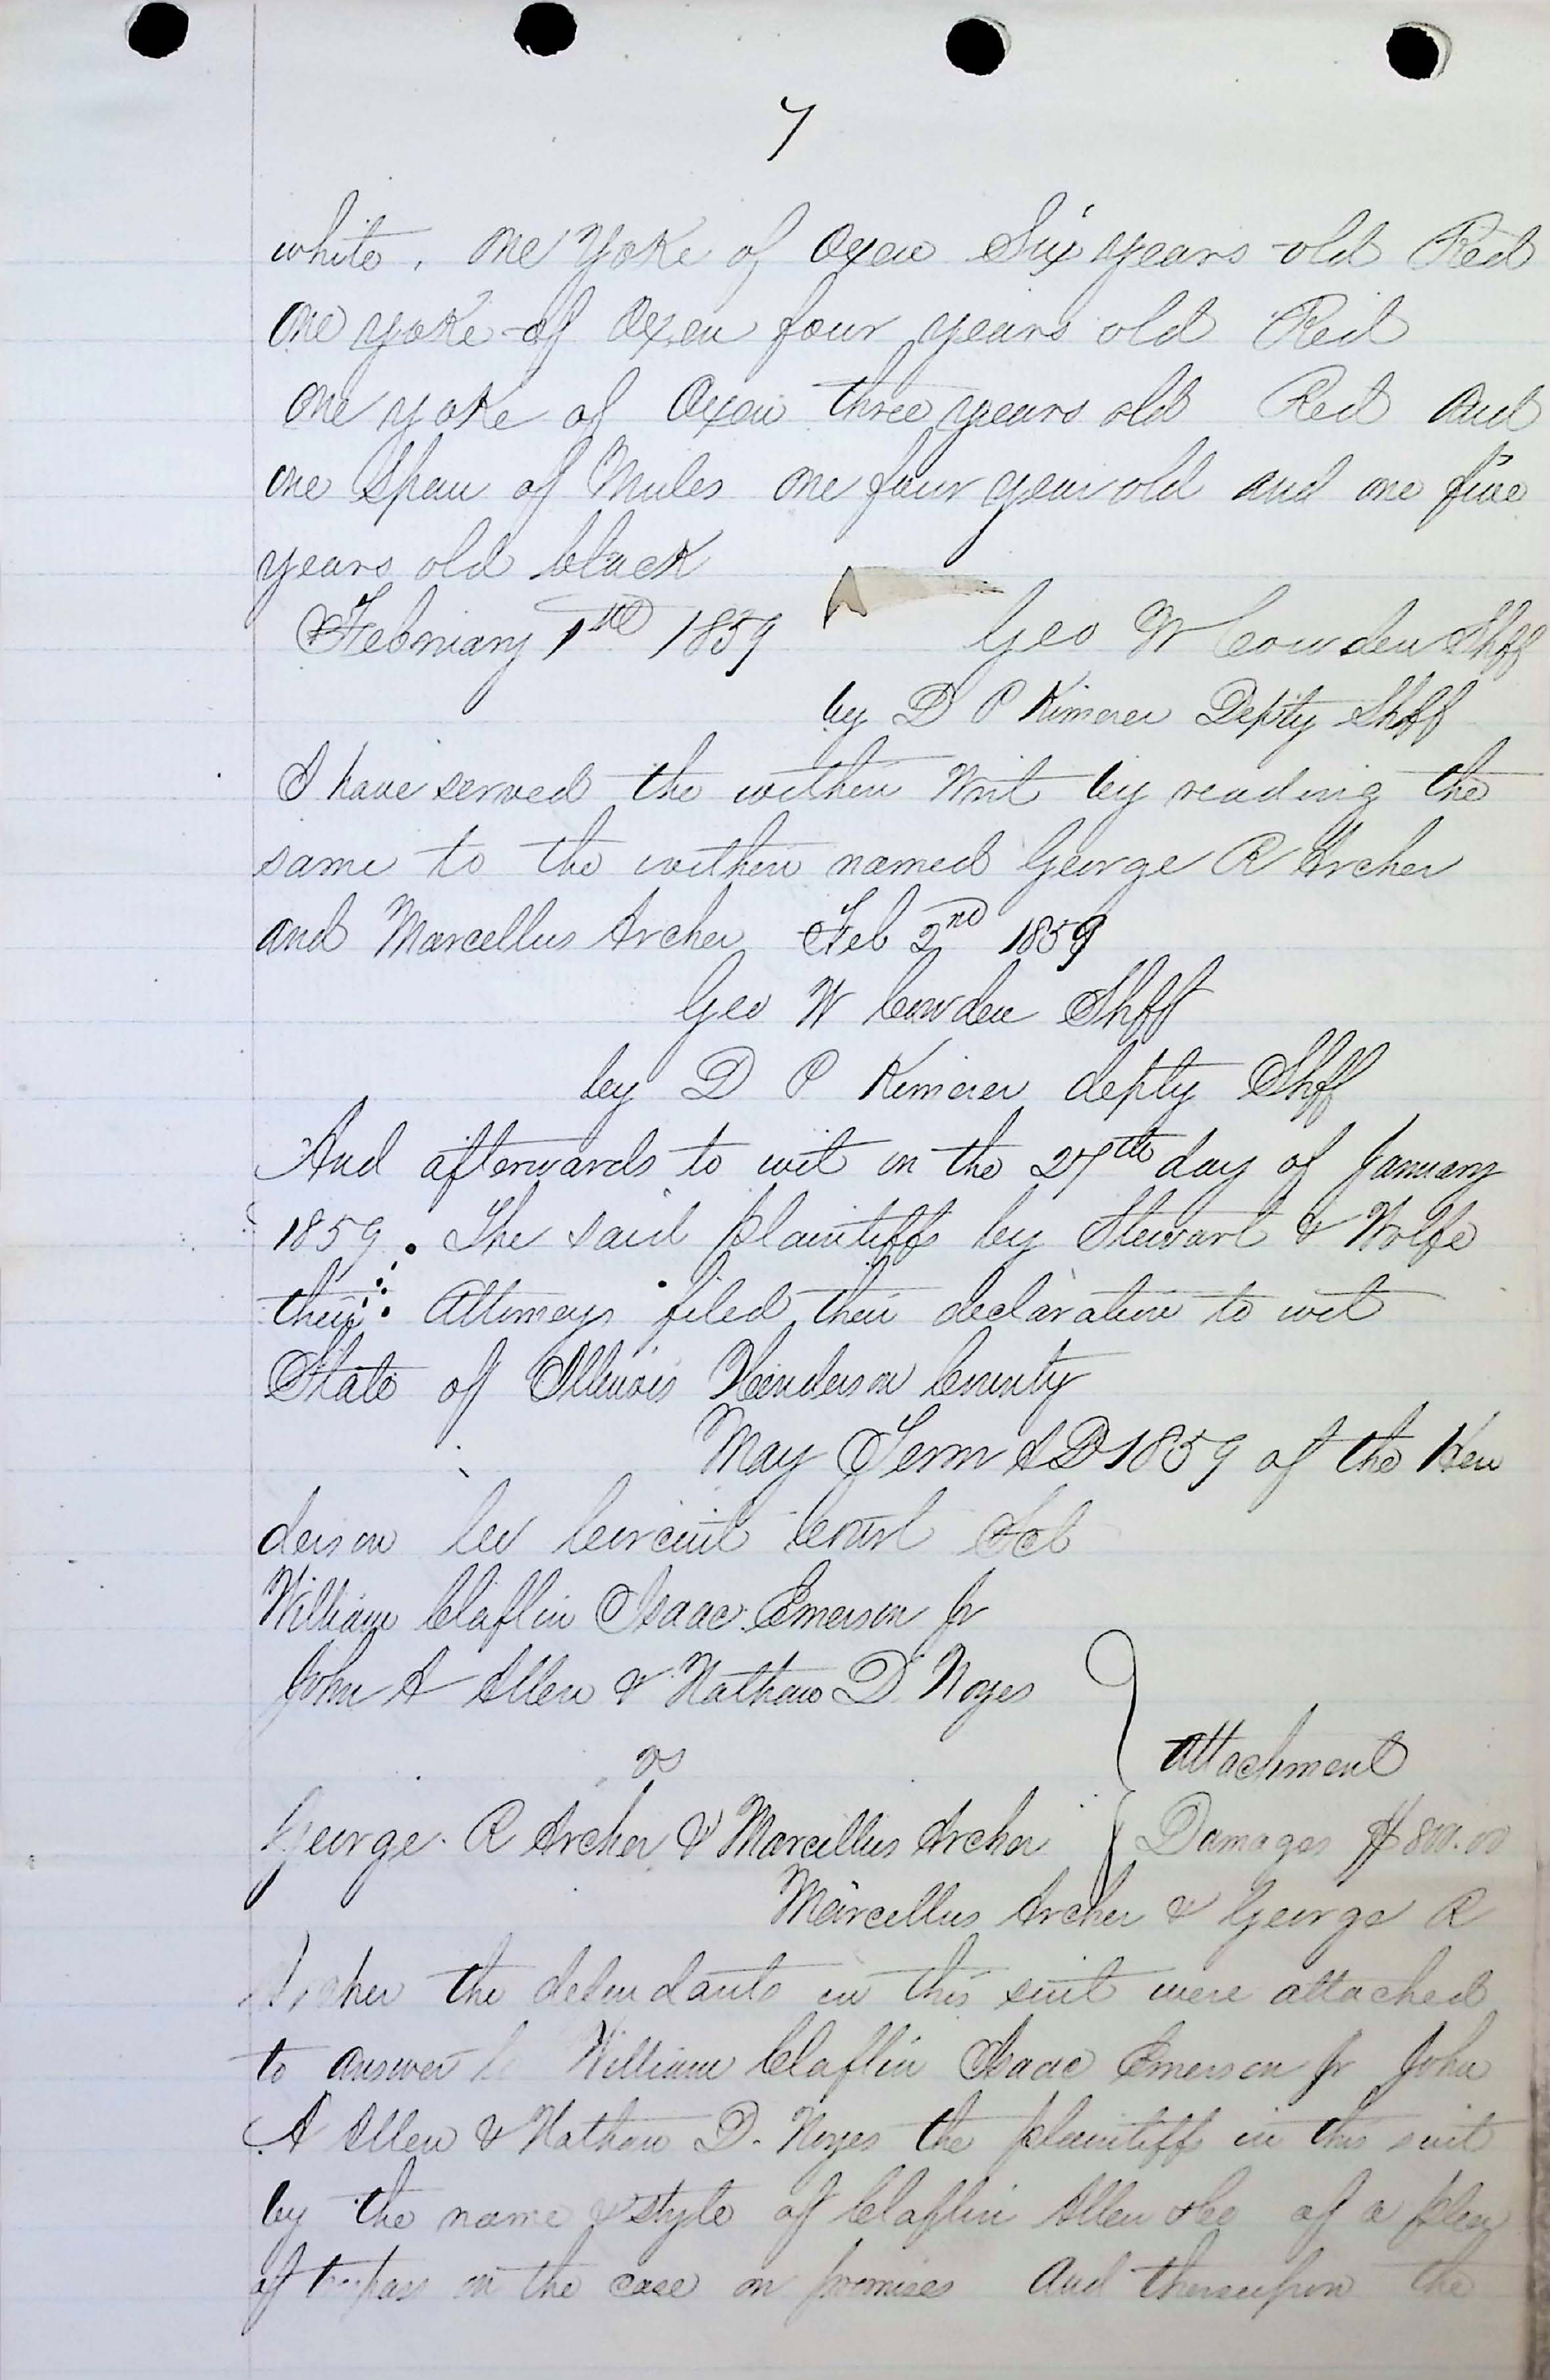 7
white, one Yoke of Oxen Six years old Red
One yoke of Oxen four years old Red
One yoke of Oxen three years old Red and
one Span of Mules one four year old and one five
years old black
February 1st 1859 Geo W Cowden Shff
by D P Kimerer Depty Shff
I have served the within Writ by reading the
same to the within named George R Archer
and Marcellus Archer Feb 2nd 1859
Geo W Cowden Shff
by D P Kimerer depty Shff
And afterwards to wit on the 27th day of January
1859. The said plaintiffs by Stewart & Wolfe
their Attorneys filed their declaration to wit
State of Illinois Henderson County
May Term AD 1859 of the Hen
derson Co Circuit Court Sct
William Claflin Isaac Emerson Jr
John A Allen & Nathan D Noyes
vs
Attachment
George R Archer & Marcellus Archer Damages $800.00
Marcellus Archer & George R
Archer the defendants in this suit were attached
to answer William Claflin Isaac Emerson Jr John
A Allen & Nathan D. Noyes the plaintiff in this suit
by the name & style of Claflin Allen &Co of a plea
of trespass on the case on promises And thereupon the